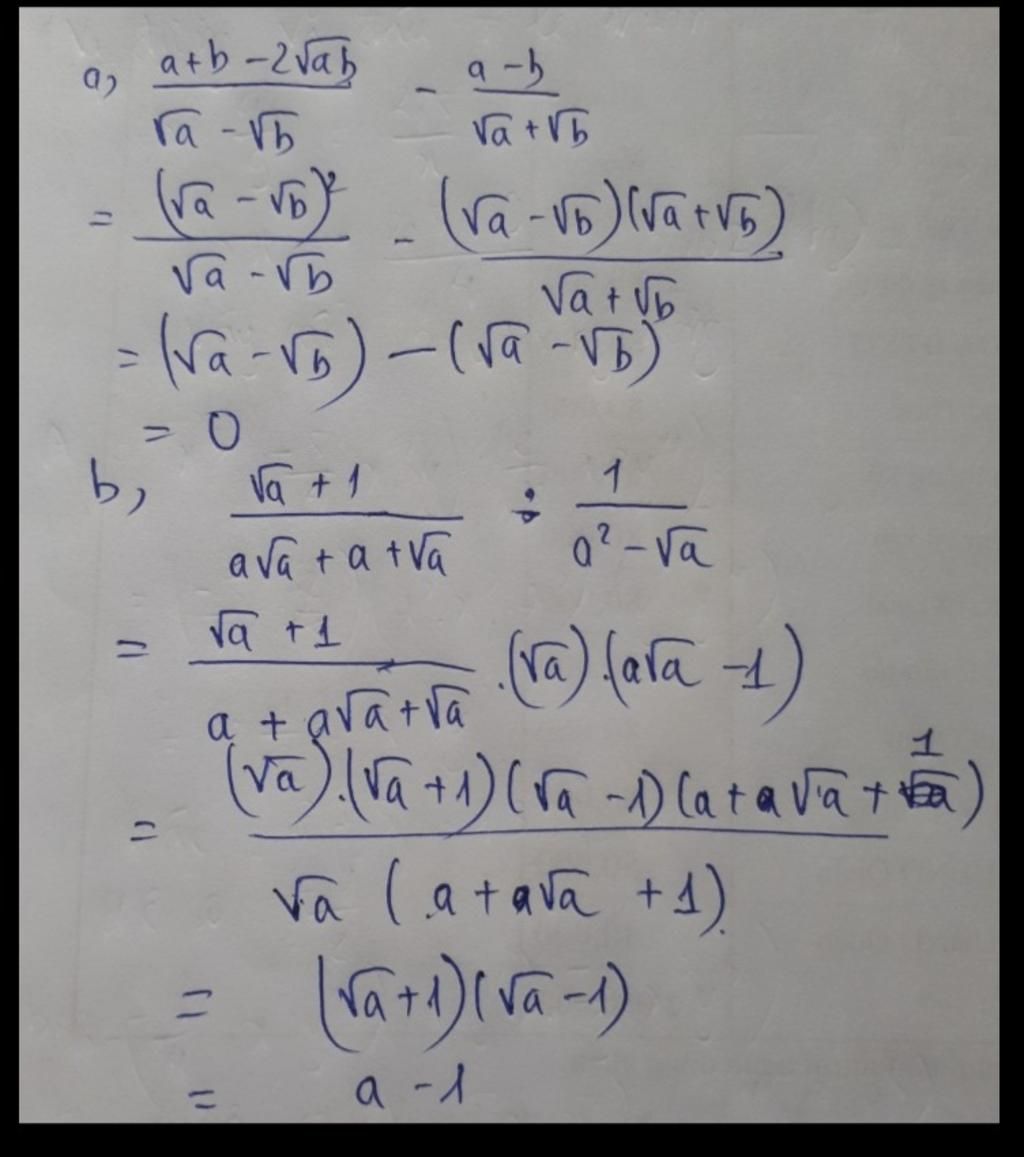 a, (a+b-2√ab)/(√a-√b) - (a-b)/(√a+√b)
= (√a-√b)²/(√a-√b) - (√a-√b)(√a+√b)/(√a+√b)
= (√a-√b) - (√a-√b)
= 0
b, (√a+1)/(a√a+a+√a) ÷ 1/(a²-√a)
= (√a+1)/(a+a√a+√a) .(√a).(a√a-1)
= (√a).(√a+1)(√a-1)(a+a√a+1)/√a(a+a√a+1)
= (√a+1)(√a-1)
= a-1